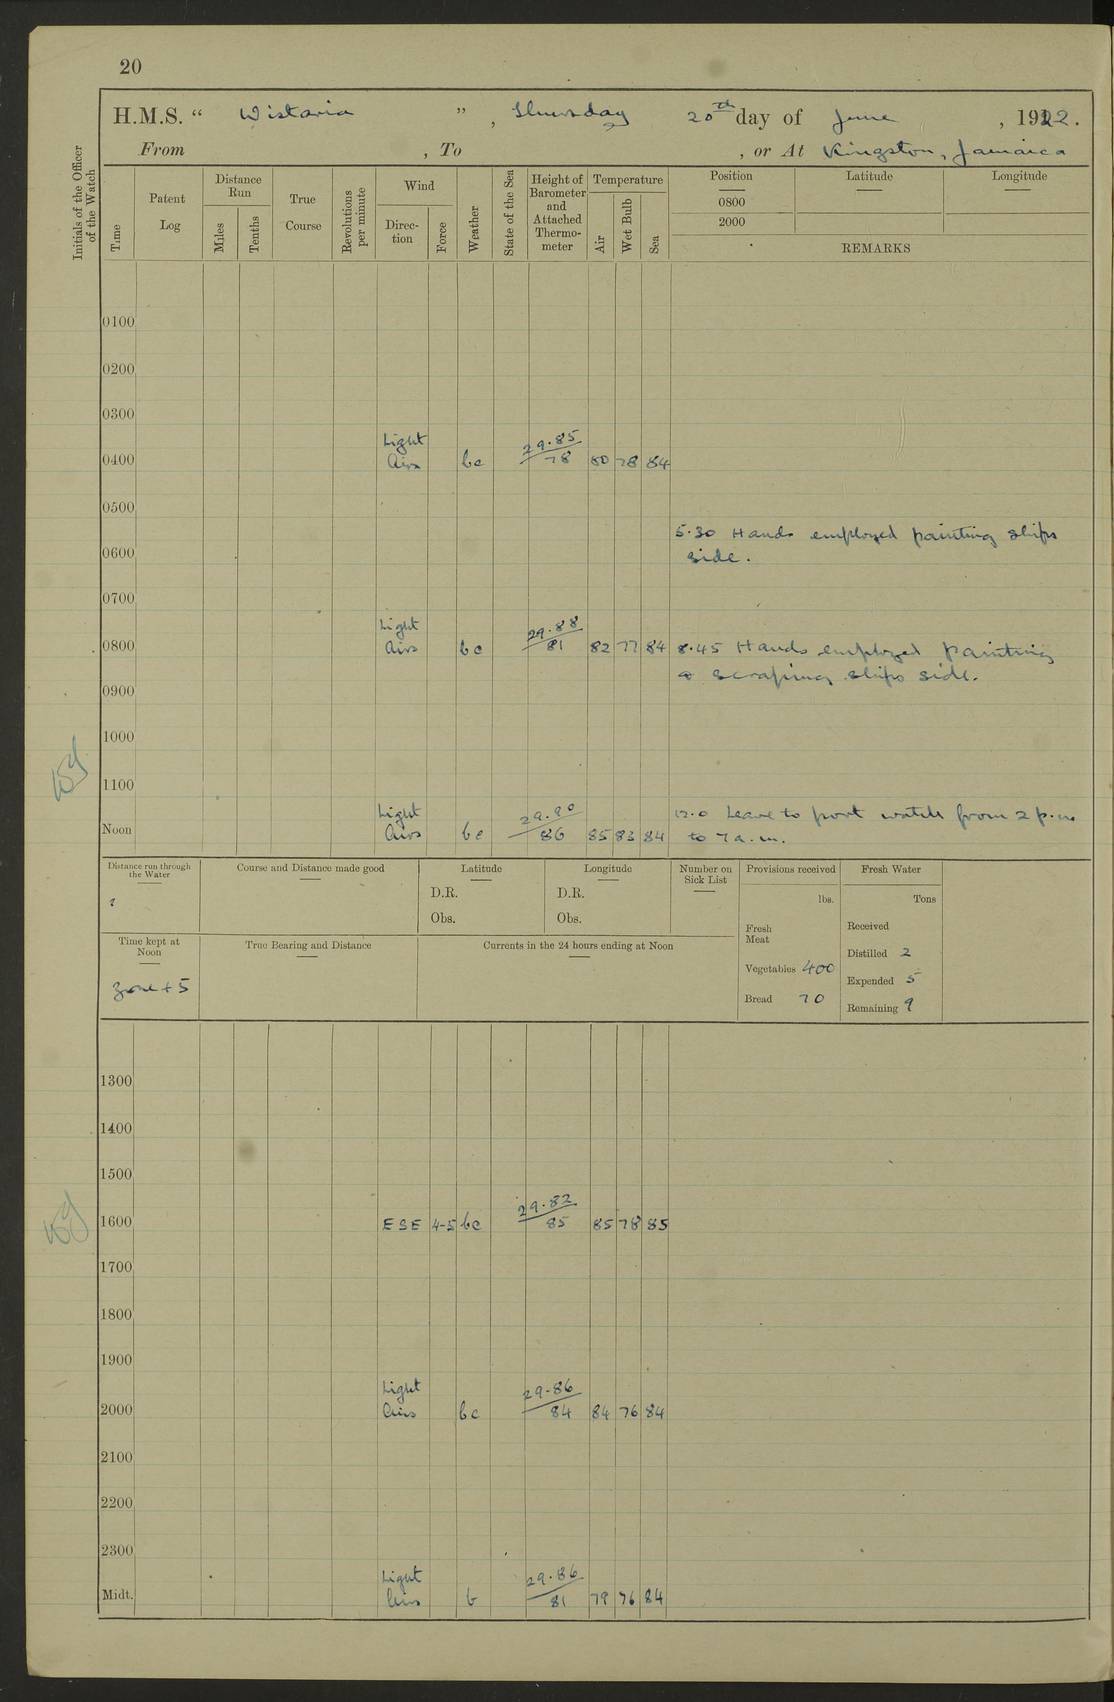 20
H.M.S. “ Wistaria ” , Thursday 20th day of June , 1922.
From , To , or At Kingston, Jamaica
Initials of the Officer of the Watch
Time
Patent Log
Distance Run
Miles
Tenths
True Course
Revolutions per minute
Wind
Direction
Force
Weather
State of the Sea
Height of Barometer and Attached Thermometer
Temperature
Air
Wet Bulb
Sea
Position
0800
2000
Latitude
Longitude
REMARKS
0100
0200
0300
0400 Light Airs bc 29.85 78 80 78 84
0500
5.30 Hands employed painting ships
0600 side.
0700
0800 Light Airs bc 29.88 81 82 77 84 8.45 Hands employed painting
& scraping ships side.
0900
1000
1100
Noon Light Airs bc 29.90 86 85 83 84 12.0 Leave to port watch from 2 p.m.
to 7 a.m.
Distance run through the Water
Course and Distance made good
Latitude
D.R.
Obs.
Longitude
D.R.
Obs.
Number on Sick List
Provisions received
lbs.
Fresh Meat
Vegetables 400
Bread 70
Fresh Water
Tons
Received
Distilled 2
Expended 5
Remaining 9
Time kept at Noon
Zone + 5
True Bearing and Distance
Currents in the 24 hours ending at Noon
1300
1400
1500
1600 ESE 4-5 bc 29.82 85 85 78 85
1700
1800
1900
2000 Light Airs bc 29.86 84 84 76 84
2100
2200
2300
Midt. Light Airs b 29.86 81 79 76 84